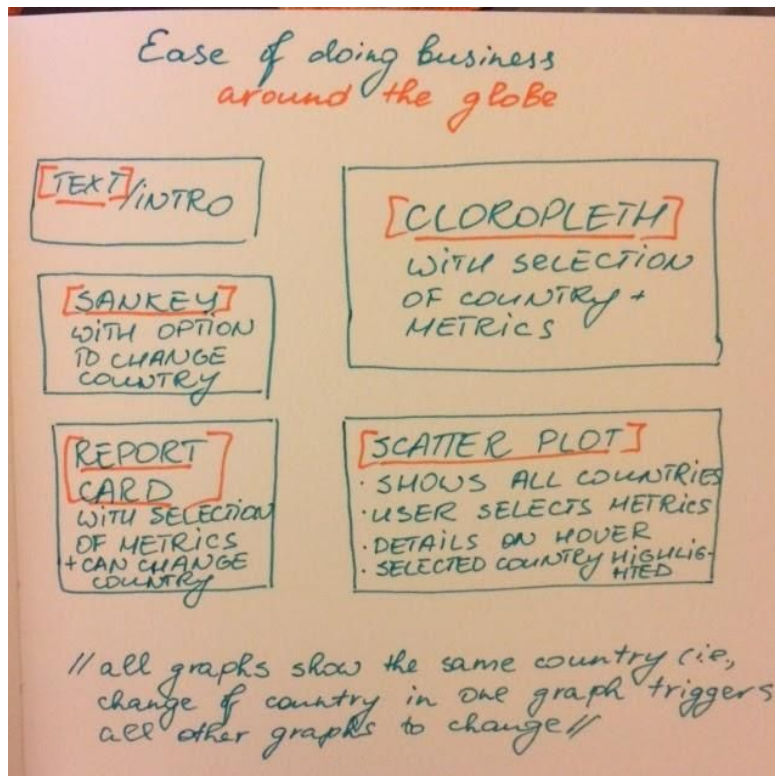 Ease of doing business
around the globe
[TEXT]/INTRO
[SANKEY]
WITH OPTION
TO CHANGE
COUNTRY
[REPORT
CARD]
WITH SELECTION
OF METRICS
+ CAN CHANGE
COUNTRY
[CLOROPLETH]
WITH SELECTION
OF COUNTRY +
METRICS
[SCATTER PLOT]
· SHOWS ALL COUNTRIES
· USER SELECTS METRICS
· DETAILS ON HOVER
· SELECTED COUNTRY HIGHLIG-
HTED
// all graphs show the same country (i.e.,
change of country in one graph triggers
all other graphs to change //